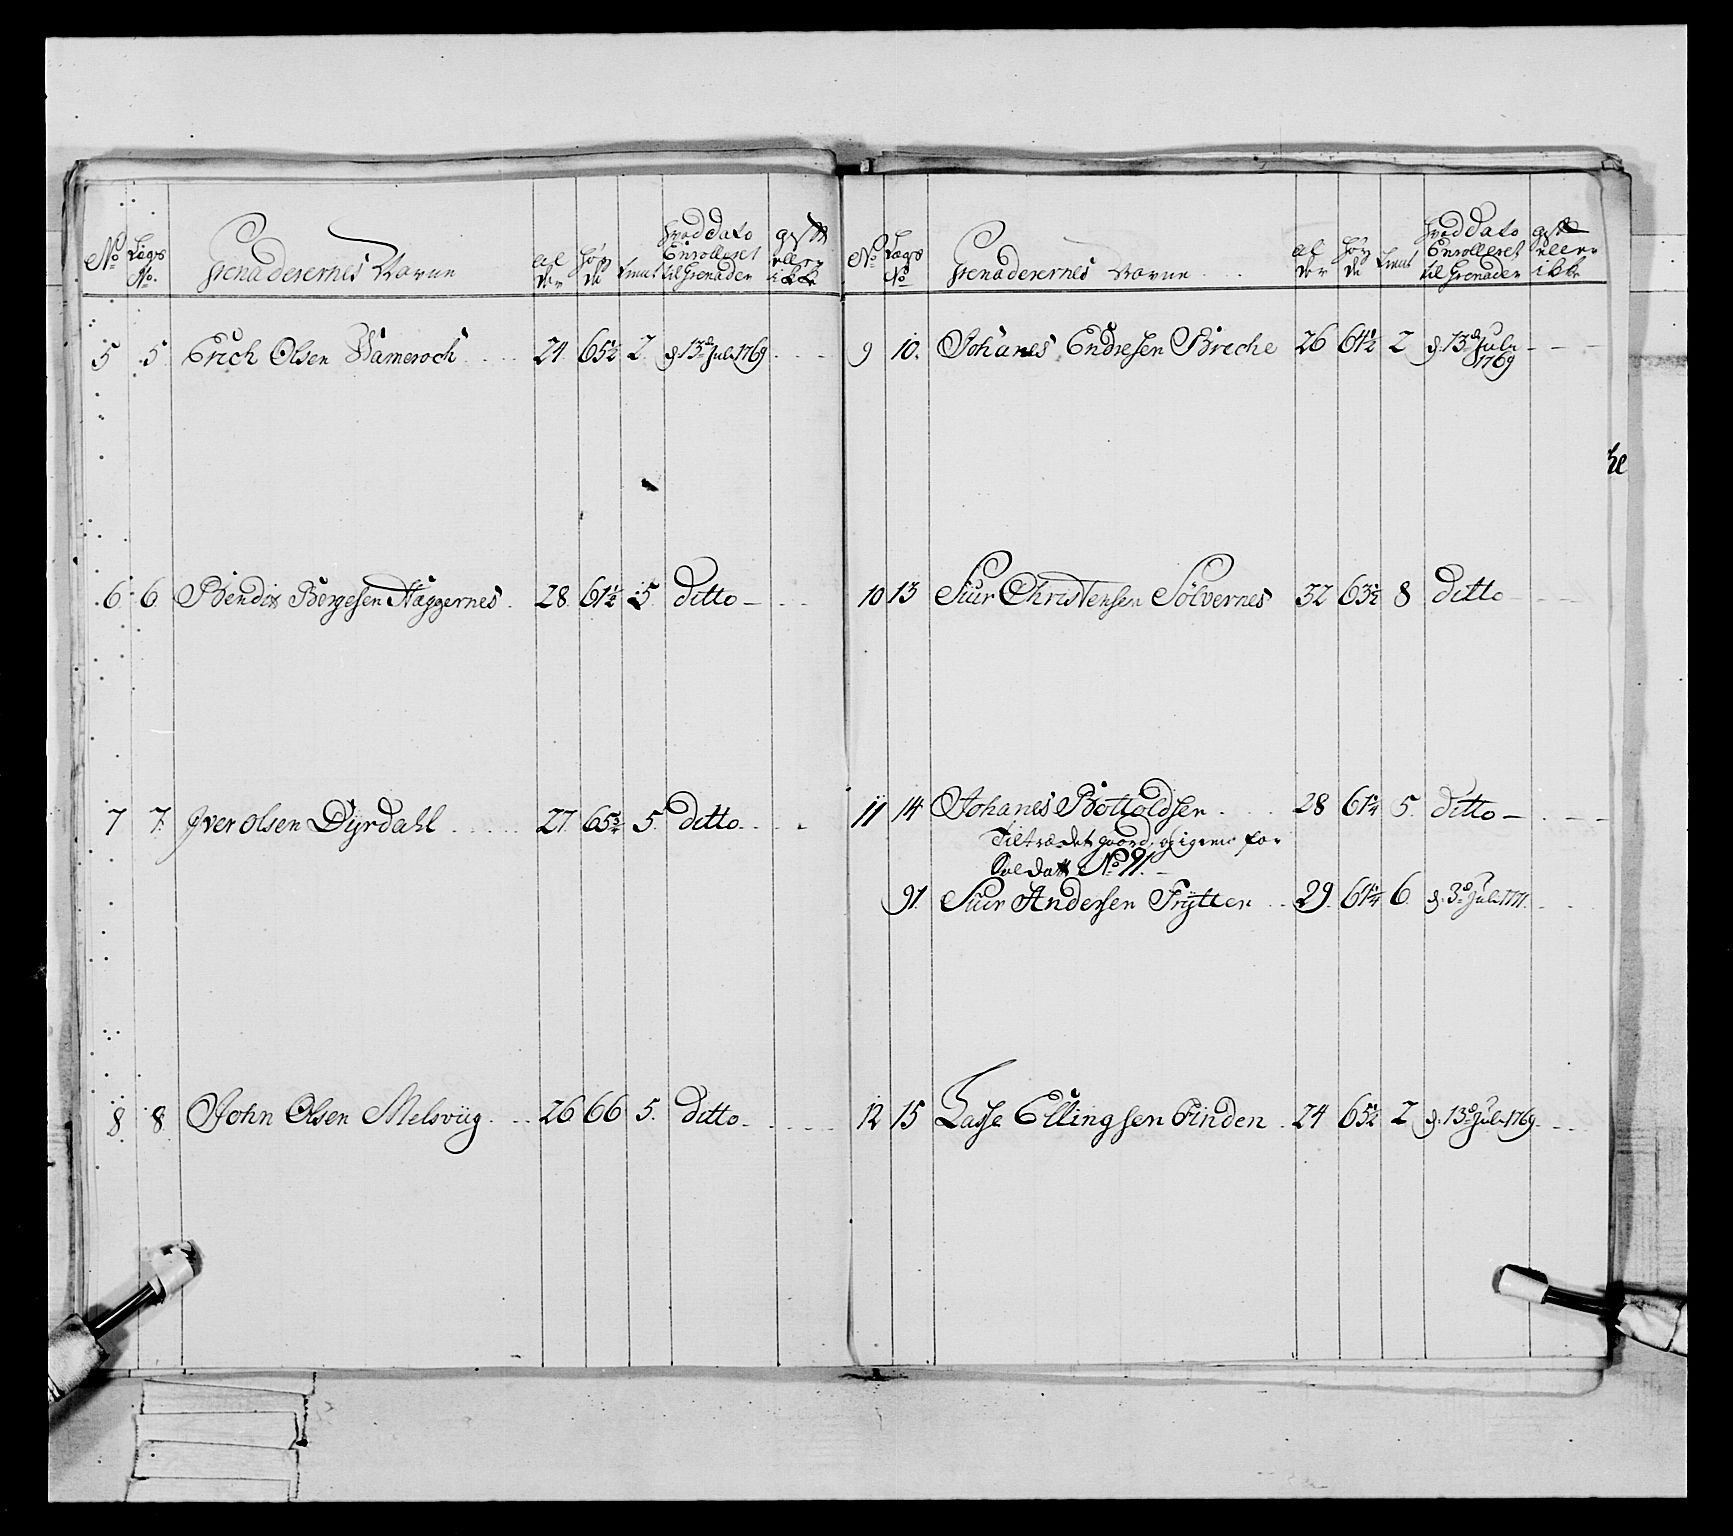 No Lægs No. Grenaderernes Navne alder Høyde hvad dato Enrolleret til Grenader gift eller ikke
5 5 Erich Olsen Wameroch 24. 65½ 2. d. 13de Julj 1769
6 6 Bendix Børgesen Haggernes. 28. 61½ 5 ditto
7 7. Iver Olsen Dyrdahl 27 5. ditto
8 8. John Olsen Melsviig 26 66 5. ditto
No Lægs No Grenaderernes Navne alder Høyde hvad dato Enrolleret til Grenader gift eller ikke
9 10. Johanes Endresen Breche 26 64½ 2 d. 13de Julj
1769
10 13 Siur Christensen Sølvernes 32 63½ 8 ditto
11 14 Johanes Bottoldsen 28 61¼ 5. ditto
Tiltrædet gaard, og igien for
Soldatt No 91.
91. Siur Andersen Frÿtten 29. 61¼ 6. d. 3de Julj 1771.
12 15 Lasse Ellingsen Finden 24 65½ 2 d. 13de Julj 1769.